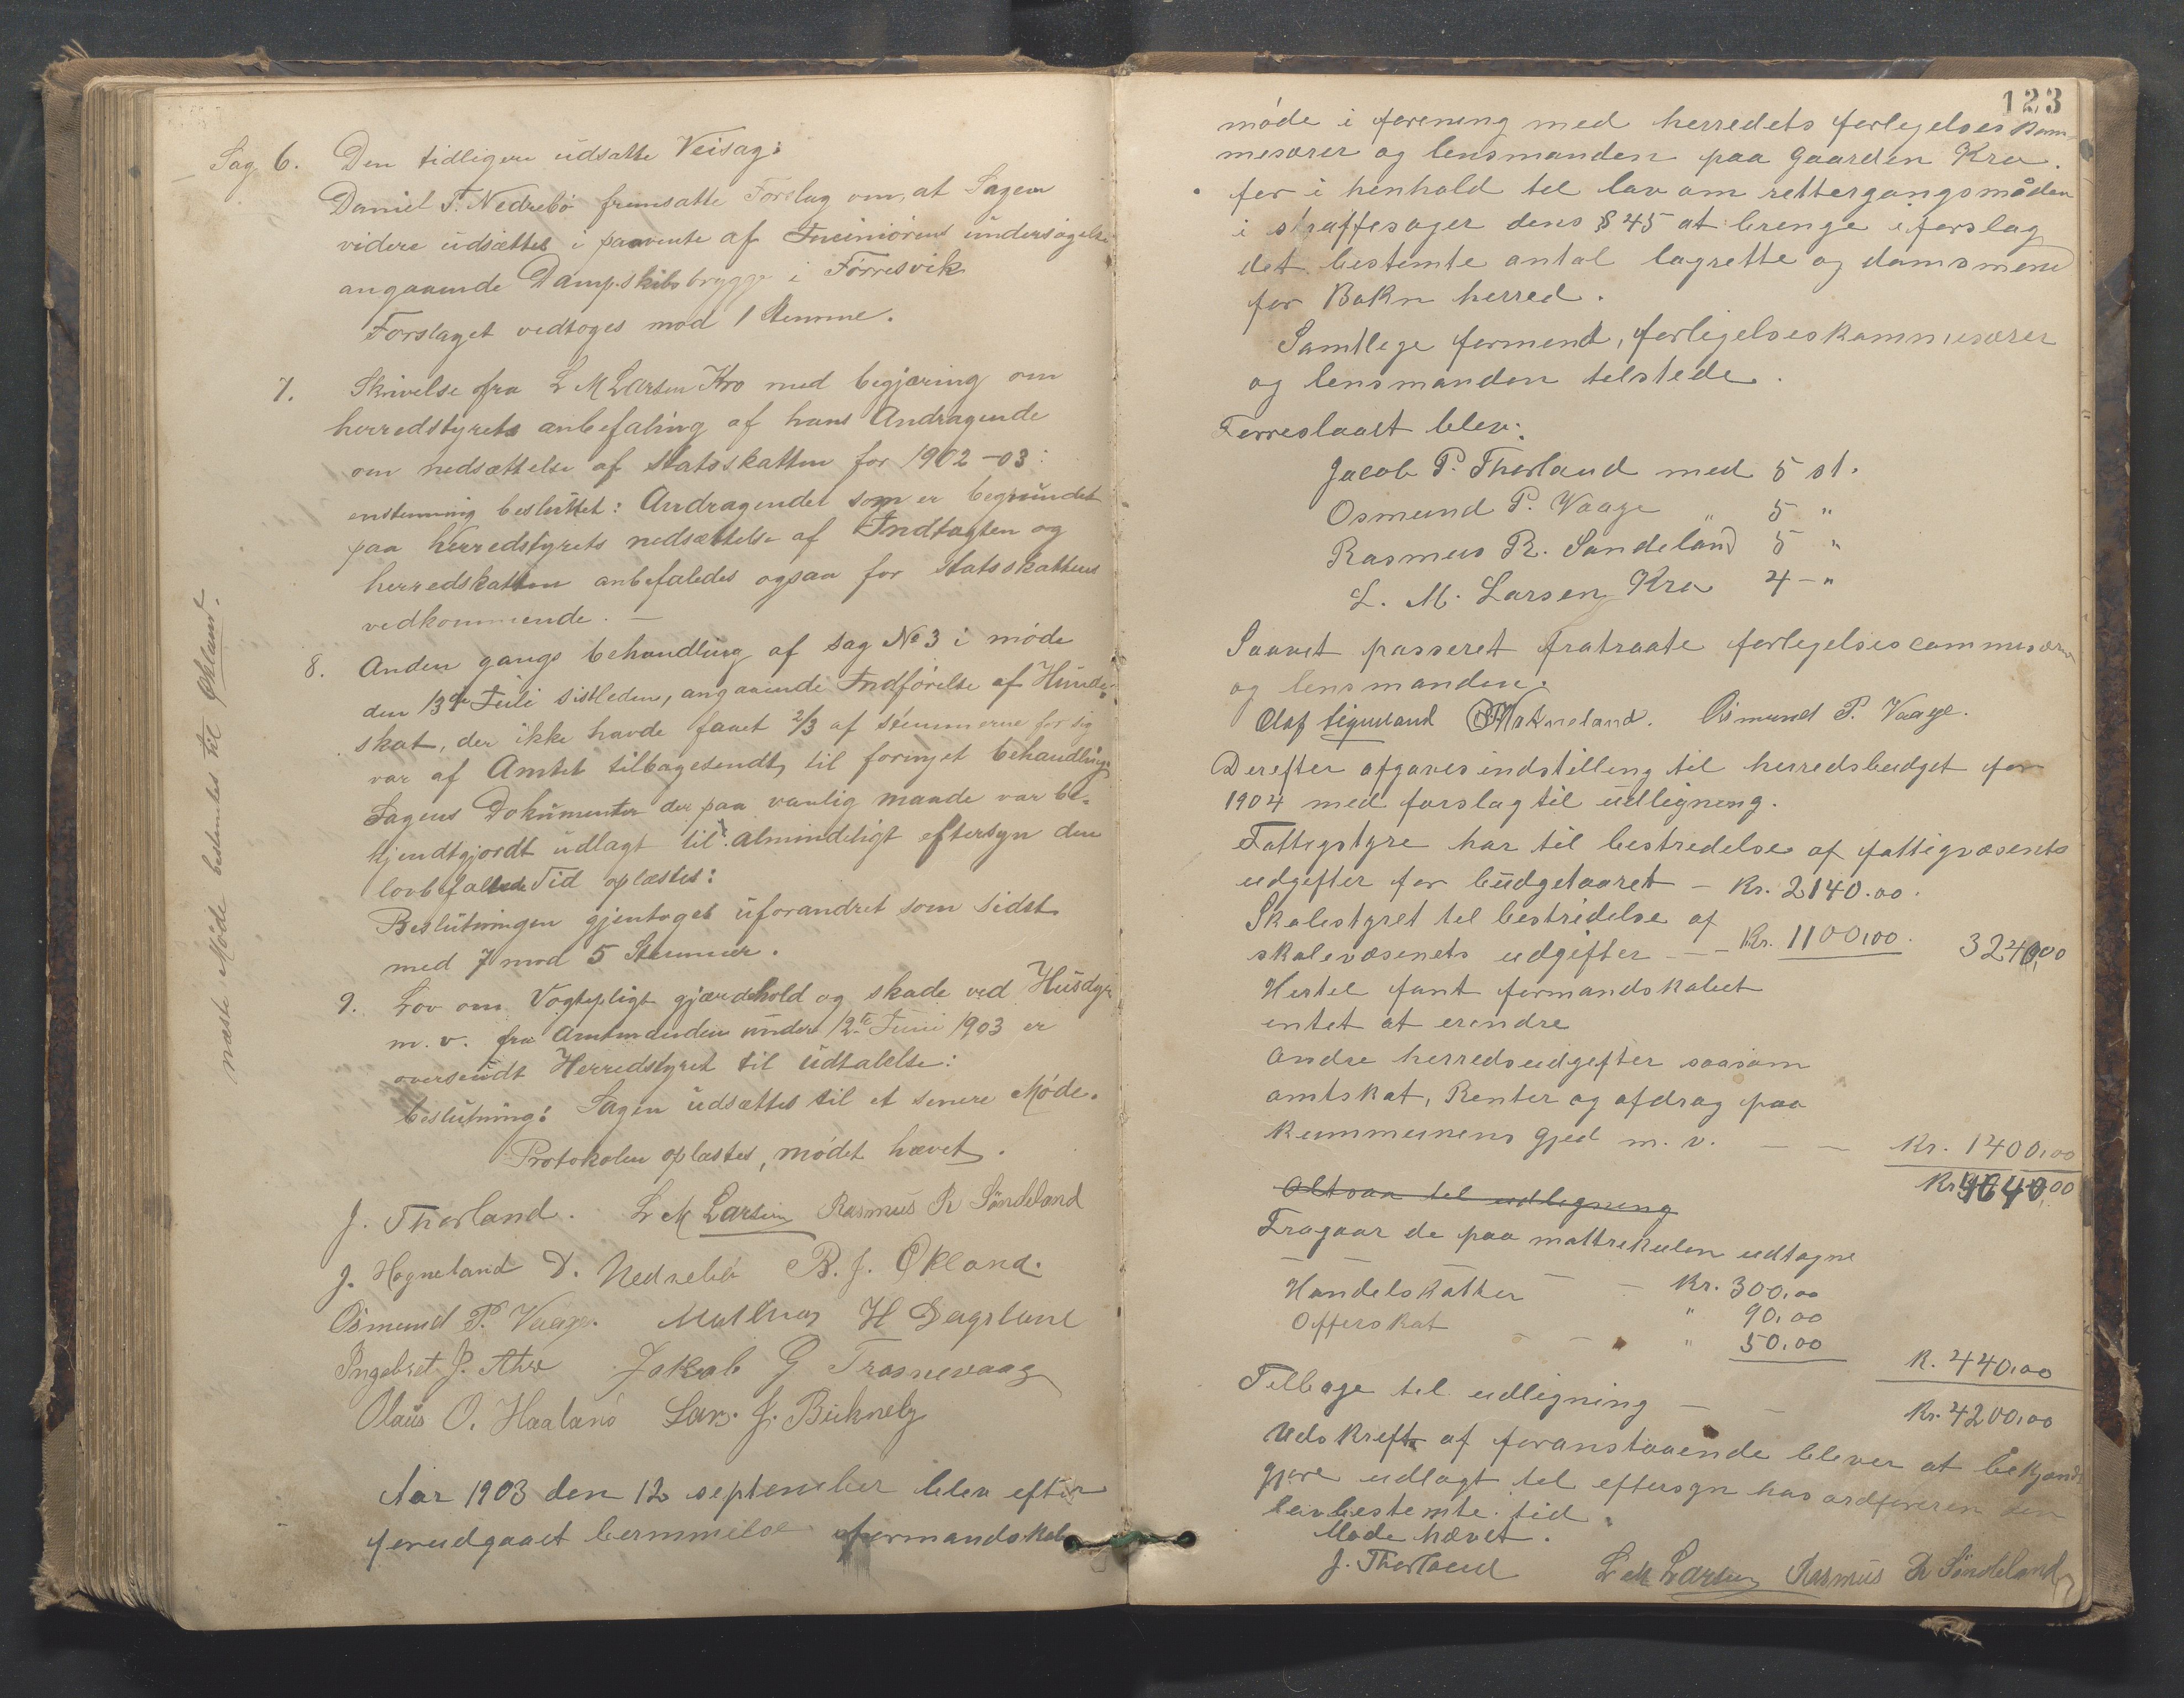 Sag 6. Den tidligere udsatte Veisag:
Daniel T. Nedrebö fremsatte Forslag om, at Sagen
videre udsættes i paavente af Inciniörens undersögelse
angaaende Dampskibsbrygge i Förresvik
Forslaget vedtoges mod 1 Stemme.
7. Skrivelse fra L M Larsen Kro med begjæring om
herredstyrets anbefaling af hans Andragende
om nedsættelse af statsskatten for 1902-03:
enstemmig besluttet: Andragendet som er begrundet
paa herredstyrets nedsættelse af Indtægten og
herredskatten anbefaledes ogsaa for statsskattens
vedkommende. —
8. Anden gangs behandling af sag No 3 i möde
den 13de Juli sistleden, angaaende Indförelse af Hunde-
skat, der ikke havde faaet 2/3 af stemmerne for sig
var af Amtet tilbagesendt, til fornyet behandling
Sagens Dokumenter der paa vanlig maade var be-
kjendtgjordt udlagt til almindeligt eftersyn den
lovbefalede Tid oplæstes:
Beslutningen gjentoges uforandret som sidst
med 7 mod 5 Stemmer.
9. Lov om Vogtepligt gjærdehold og skade ved Husdyr
m. v. fra Amtmanden under 12te Juni 1903 er
oversendt Herredstyret til udtalelse:
beslutning: Sagen udsættes til et senere Möde.
Protokolen oplæstes, mödet hævet.
næste Möde bestemtes til Økland.
J. Thorland. L M Larsen Rasmus R Söndeland
J. Hogneland D. Nedrebö B. J. Økland.
Osmund P. Vaage. Mathias H Dagsland
Ingebret J. Jakob G Trosnevaag
Olaus O. Haaland Lars J.
Aar 1903 den 12 september blev efter
forudgaaet bermmelse formandskab
123
möde i forening med herredets forlegelseskom-
mesærer og lensmanden paa Gaarden Kro.
for i henhold til lov om rettergangsmåden
i straffesager dens § 45 at brenge i forslag
det bestemte antal lagrette og domsmend
for Bokn herred.
Samtlege formend, forligelseskommesærer
og lensmanden telstede.
Forreslaaet blev:
Jacob P. Thorland med 5 st.
Osmund P. Vaage " 5 "
Rasmus R. Sandeland 5 "
L. M. Larsen Kro 4 - "
Saavit passeret fratraate forlegelsescommesærer
og lensmanden.
Olaf Osmund P. Vaage.
Derefter afgaves indstilling til herredsbudget for
1904 med forslag til udligneng.
Fattigstyre har til bestredelse af fattigvæsents
udgefter for budgetaaret — Kr. 2140.00.
Skolestyret tel bestridelse af
skolevæsenets udgifter — — Kr. 1100,00. 3240,00
Hertel fant formandskabet
entet at erendre
Andre herredsudgefter saasom
amtskat, Renter og afdrag paa
kummunens gjed m. v. — — Kr. 1400,00
Kr 4640,00
Altsaa tel udlegneng
Fragaar de paa mattrekulen udtagne
— — — — Kr. 300,00
Handelskatter " 90,00
Offerskat — — " 50,00
K. 440,00
Telbage tel udligning — — Kr. 4200,00
Udskreft af foranstaaende blever at bekjendt
gjöre udlagt tel eftersyn hos ordföreren den
lavbestemte tid.
Möde hævet.
J. Thorland L M Larsen Rasmus R Söndeland